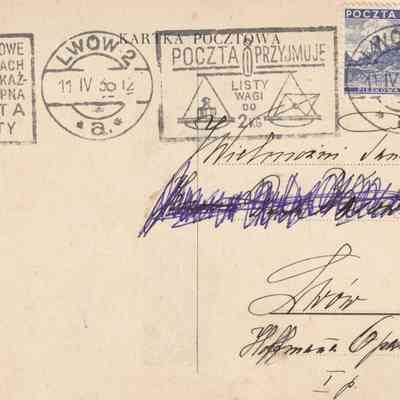 KARTKA POCZTOWA
OWE
ACH
KAŻ-
PNA
TA
TY
LWÓW 2
11 IV 36 12
* a. *
POCZTA PRZYJMUJE
LISTY
WAGI
DO
2 KG
POCZTA
LWÓ
11 IV
PIESKOWA
Wielmożni
Lwów
Hoffmana Opa
I p.